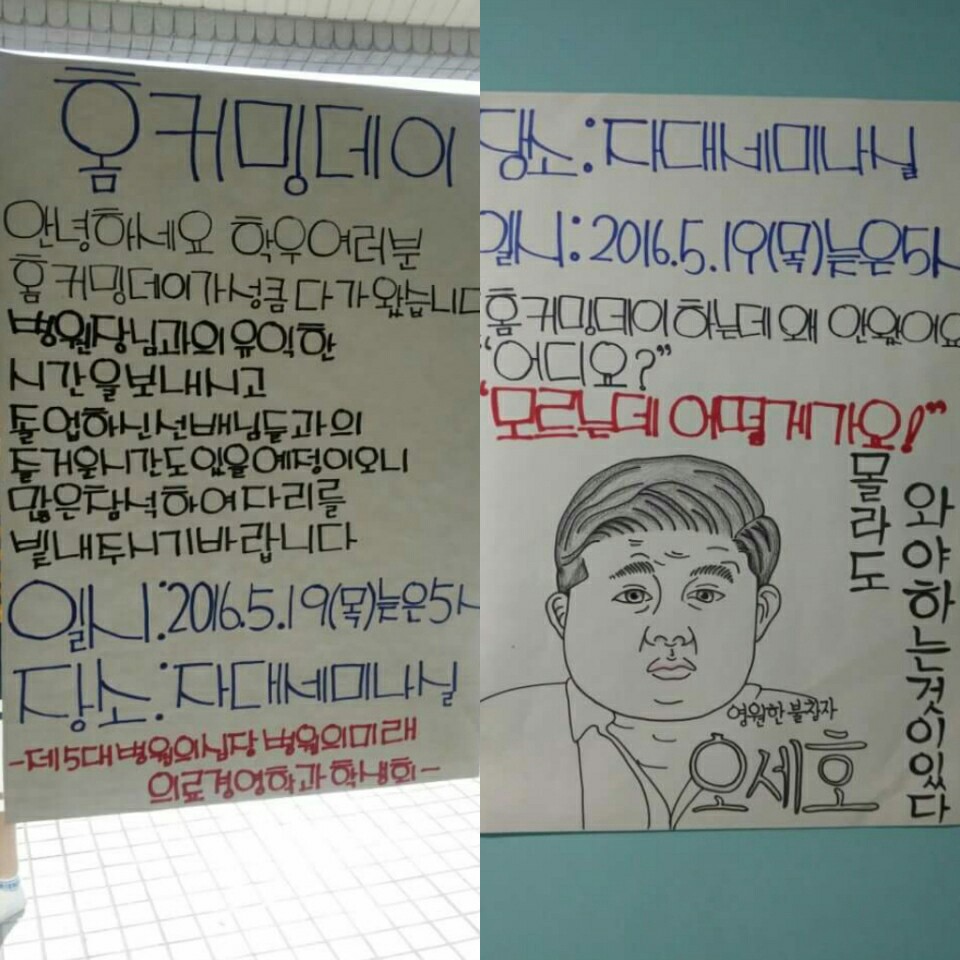 홈커밍데이
안녕하세요 학우여러분
홈 커밍데이가 성큼 다가왔습니다
병원장님과의 유익한
시간을 보내시고
졸업하신 선배님들과의
즐거운시간도 있을예정이오니
많은참석하여 자리를
빛내주시기바랍니다
일시:2016.5.19(목)늦은5시
장소:자대세미나실
-제5대 병원의심장 병원의미래
의료경영학과 학생회-
장소:자대세미나실
일시:2016.5.19(목)늦은5시
"홈커밍데이 하는데 왜 안왔어요
"어디요?"
"모르는데 어떻게가요!"
몰라도
와야하는것이있다
영원한 불참자
오세호